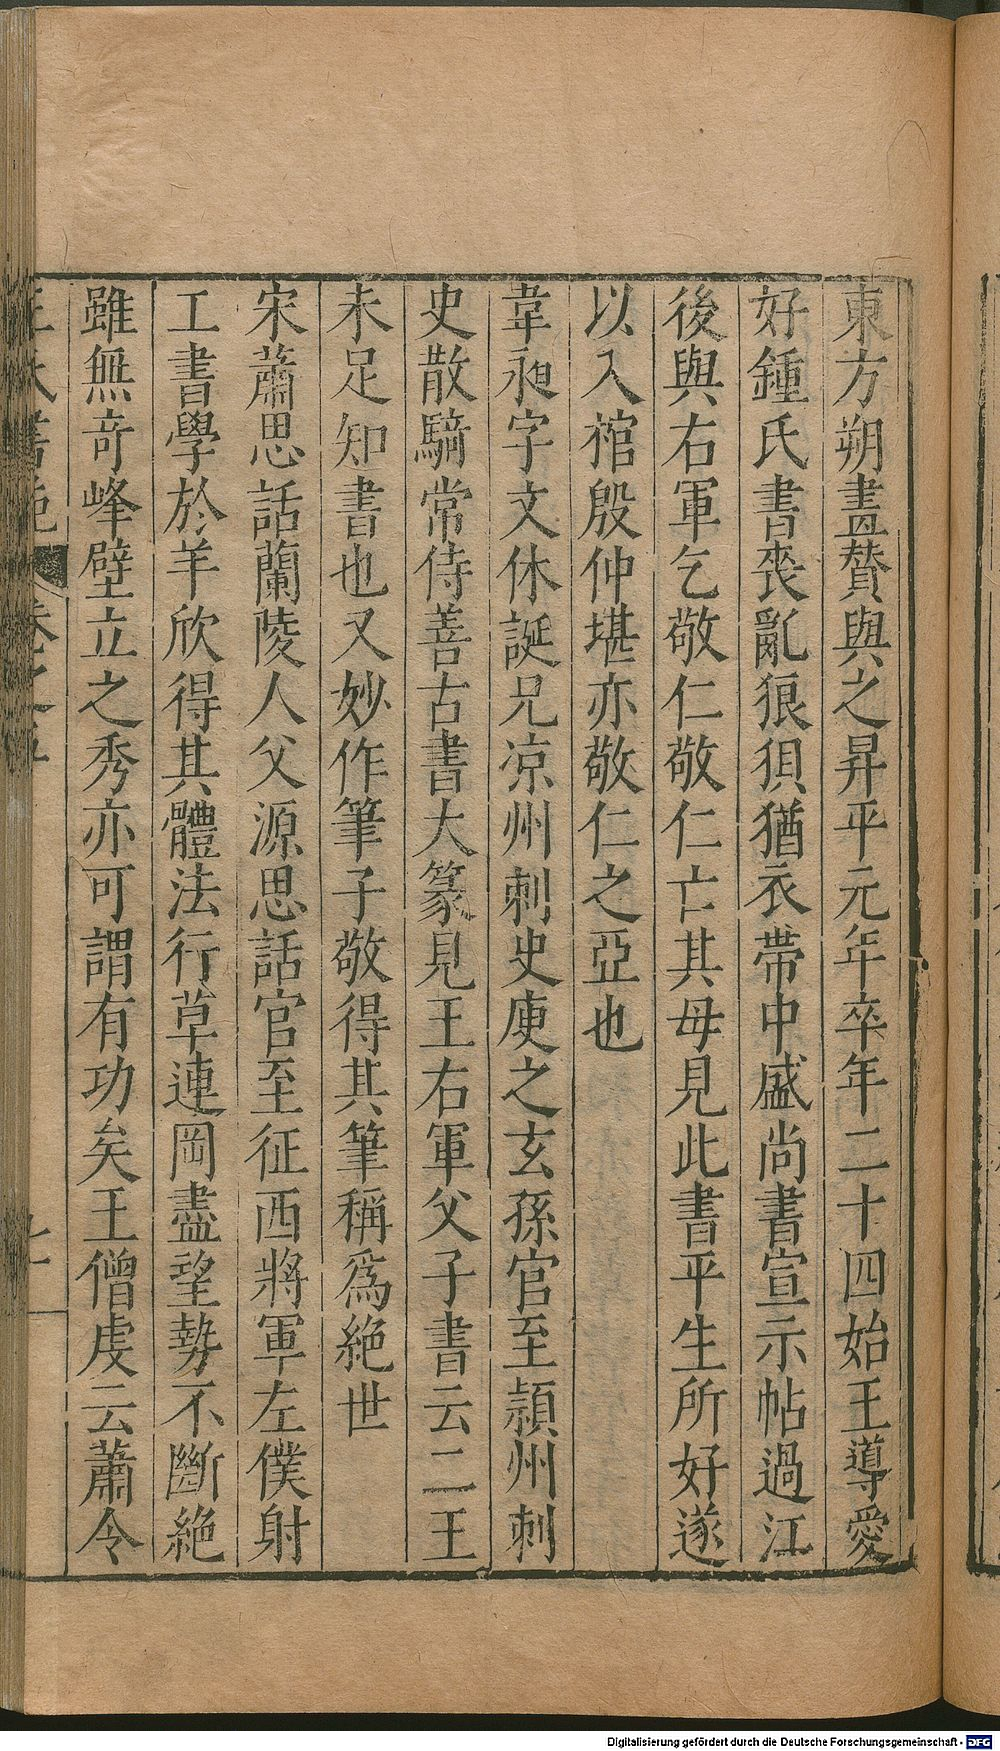 東方朔畫贊與之昇平元年卒年二十四始王導愛
好鍾氏書喪亂狼狽猶衣帶中盛尚書宣示帖過江
後與右軍乞敬仁敬仁亡其母見此書平生所好遂
以入棺殷仲堪亦敬仁之亞也
韋昶字文休誕兄凉州刺史康之玄孫官至潁州刺
史散騎常侍善古書大篆見王右軍父子書云二王
未足知書也又妙作筆子敬得其筆稱爲絕世
宋蕭思話蘭陵人父源思話官至征西將軍左僕射
工書學於羊欣得其體法行草連岡盡望勢不斷絕
雖無奇峰壁立之秀亦可謂有功矣王僧虔云蕭令
王氏書苑 卷之五
Digitalisierung gefördert durch die Deutsche Forschungsgemeinschaft - DFG